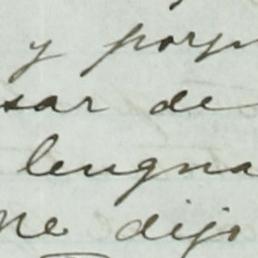 y porq
sar de
lengua
me dijo